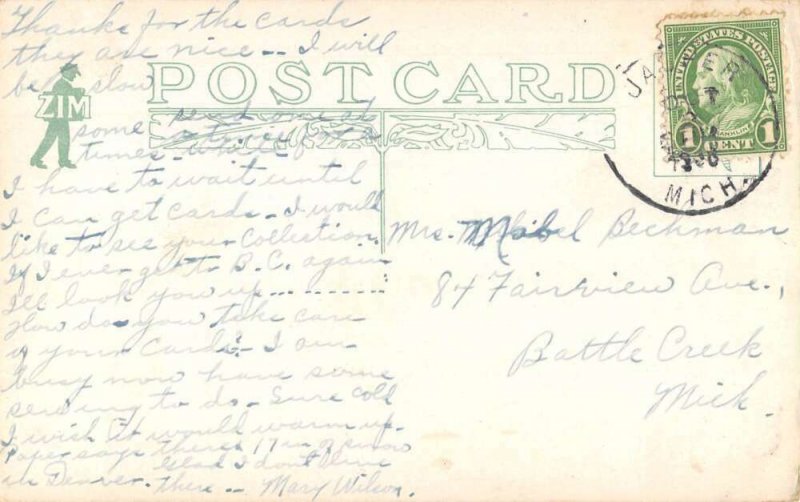 Thanks for the cards
they are nice -- I will
be slow
ZIM
POST CARD
send one at
some
times - while
I have to wait until
I can get cards - I would
like to see your Collection.
If I ever get to B.C. again
I'll look you up ..........
How do you take care
of your Cards? - I am
busy now have some
sewing to do - Sure cold
I wish it would warm up -
Paper says theres 17 in of snow
in Denver. Glad I dont live
there -- Mary Wilson.
UNITED STATES POSTAGE
FRANKLIN
1 CENT 1
MICH.
Mrs. Mabel Bechman
84 Fairview Ave.,
Battle Creek
Mich.